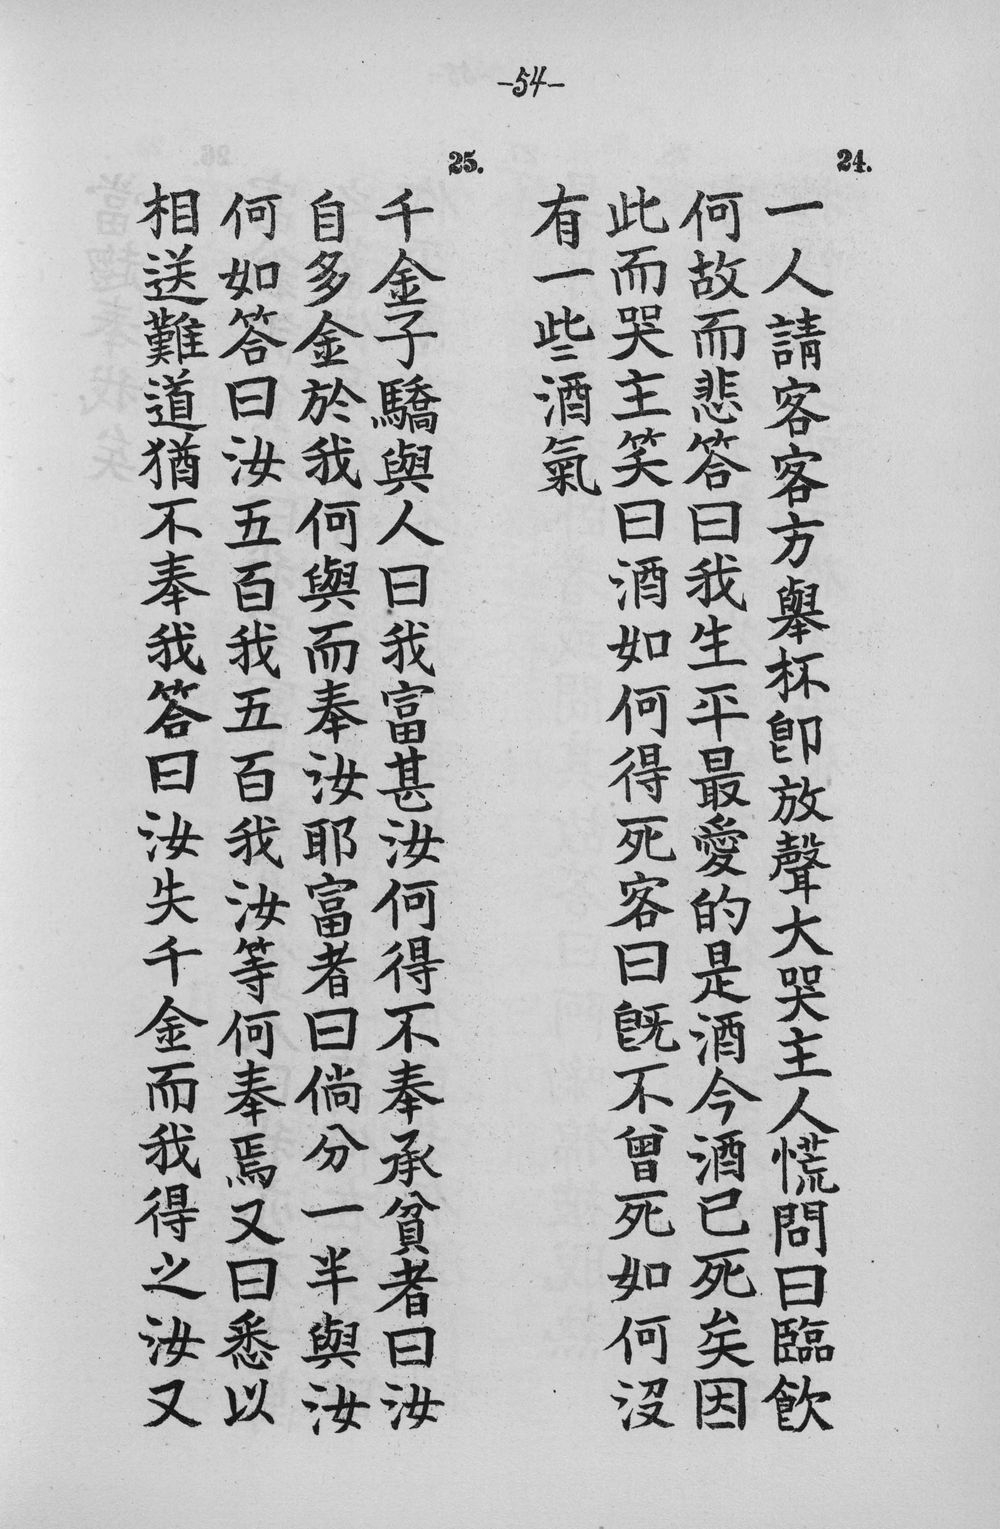 —54—
24.
一人請客客方舉杯卽放聲大哭主人慌問曰臨飮
何故而悲答曰我生平最愛的是酒今酒已死矣因
此而哭主笑曰酒如何得死客曰旣不曾死如何沒
有一些酒氣
25.
千金子驕與人曰我富甚汝何得不奉承貧者曰汝
自多金於我何與而奉汝耶富者曰倘分一半與汝
何如答曰汝五百我五百我汝等何奉焉又曰悉以
相送難道猶不奉我答曰汝失千金而我得之汝又